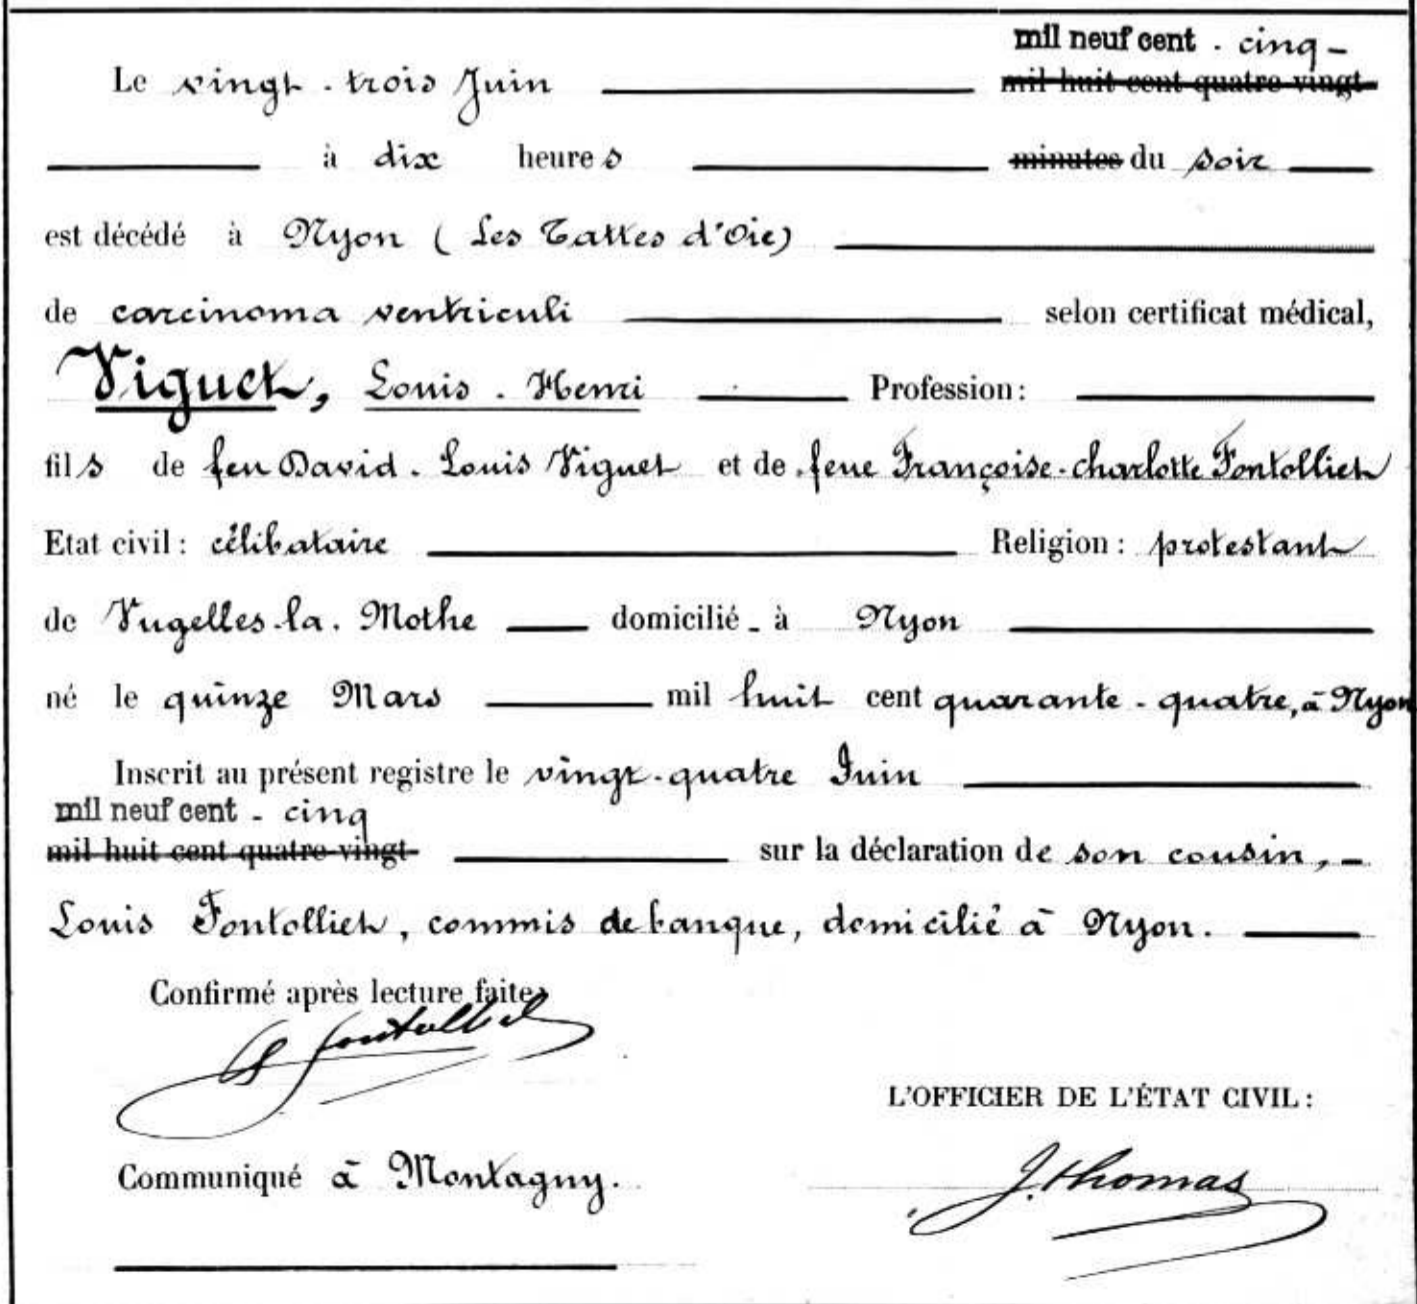 mil neuf cent . cinq -
Le vingt - trois Juin mil huit cent quatre vingt
à dix heures minutes du soir
est décédé à Nyon ( Les Tattes d'Oie)
de carcinoma ventriculi selon certificat médical,
Viguet, Louis - Henri Profession:
fils de feu David - Louis Viguet et de feue Françoise-charlotte Fontolliet
Etat civil: célibataire Religion: protestant
de Vugelles-la-Mothe domicilié - à Nyon
né le quinze Mars mil huit cent quarante - quatre, à Nyon
Inscrit au présent registre le vingt-quatre Juin
mil neuf cent - cinq
mil huit cent quatre vingt sur la déclaration de son cousin, -
Louis Fontolliet, commis de banque, domicilié à Nyon.
Confirmé après lecture faite,
Ls Fontolliet
L'OFFICIER DE L'ÉTAT CIVIL:
Communiqué à Montagny.
J. Thomas